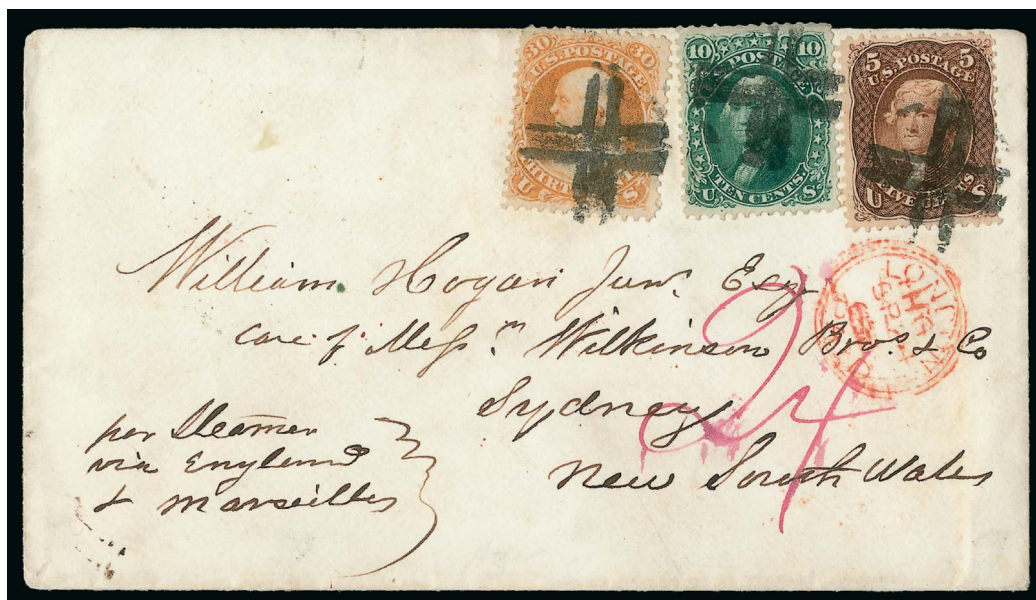 30 U.S. POSTAGE 30
U S
10 U.S. POSTAGE 10
TEN CENTS.
U S
5 U.S. POSTAGE 5
U S
LONDON
PAID
William Hogan Junr. Esq
care of Messrs. Wilkinson Bros. & Co
Sydney
New South Wales
24
per Steamer
via England
& Marseilles